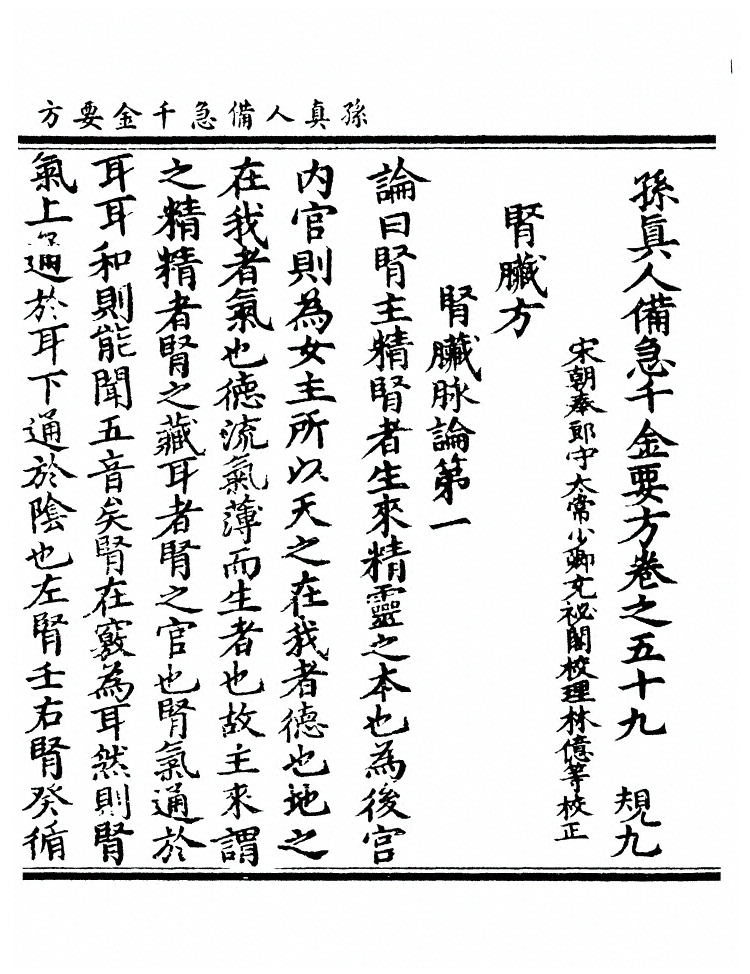 孫真人備急千金要方
孫眞人備急千金要方卷之五十九　規九
宋朝奉郎守太常少卿充祕閣校理林億等校正
腎臟方
腎臟脉論第一
論曰腎主精腎者生來精靈之本也為後宫
内官則為女主所以天之在我者德也地之
在我者氣也德流氣薄而生者也故主來謂
之精精者腎之藏耳者腎之官也腎氣通於
耳耳和則能聞五音矣腎在竅為耳然則腎
氣上通於耳下通於陰也左腎壬右腎癸循